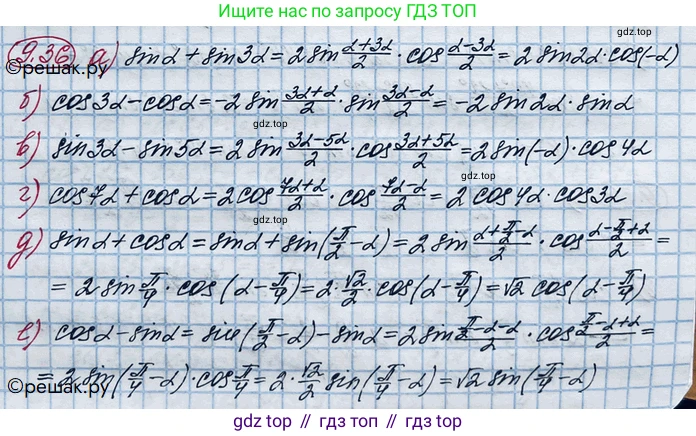 Ищите нас по запросу ГДЗ ТОП
9.36 а) sinα + sin3α = 2 sin (α+3α)/2 · cos (α-3α)/2 = 2 sin2α · cos(-α)
©reшак.ру
gdz.top
б) cos3α - cosα = -2 sin (3α+α)/2 · sin (3α-α)/2 = -2 sin2α · sinα
gdz.top
в) sin3α - sin5α = 2 sin (3α-5α)/2 · cos (3α+5α)/2 = 2 sin(-α) · cos4α
г) cos7α + cosα = 2 cos (7α+α)/2 · cos (7α-α)/2 = 2 cos4α · cos3α
gdz.top
д) sinα + cosα = sinα + sin(π/2 - α) = 2 sin (α+π/2-α)/2 · cos (α-π/2+α)/2 =
= 2 sin π/4 · cos(α - π/4) = 2 · √2/2 · cos(α - π/4) = √2 cos(α - π/4)
gdz.top
е) cosα - sinα = sin(π/2 - α) - sinα = 2 sin (π/2-α-α)/2 · cos (π/2-α+α)/2 =
= 2 sin(π/4 - α) · cos π/4 = 2 · √2/2 sin(π/4 - α) = √2 sin(π/4 - α)
©reшак.ру
gdz top // гдз топ // gdz.top